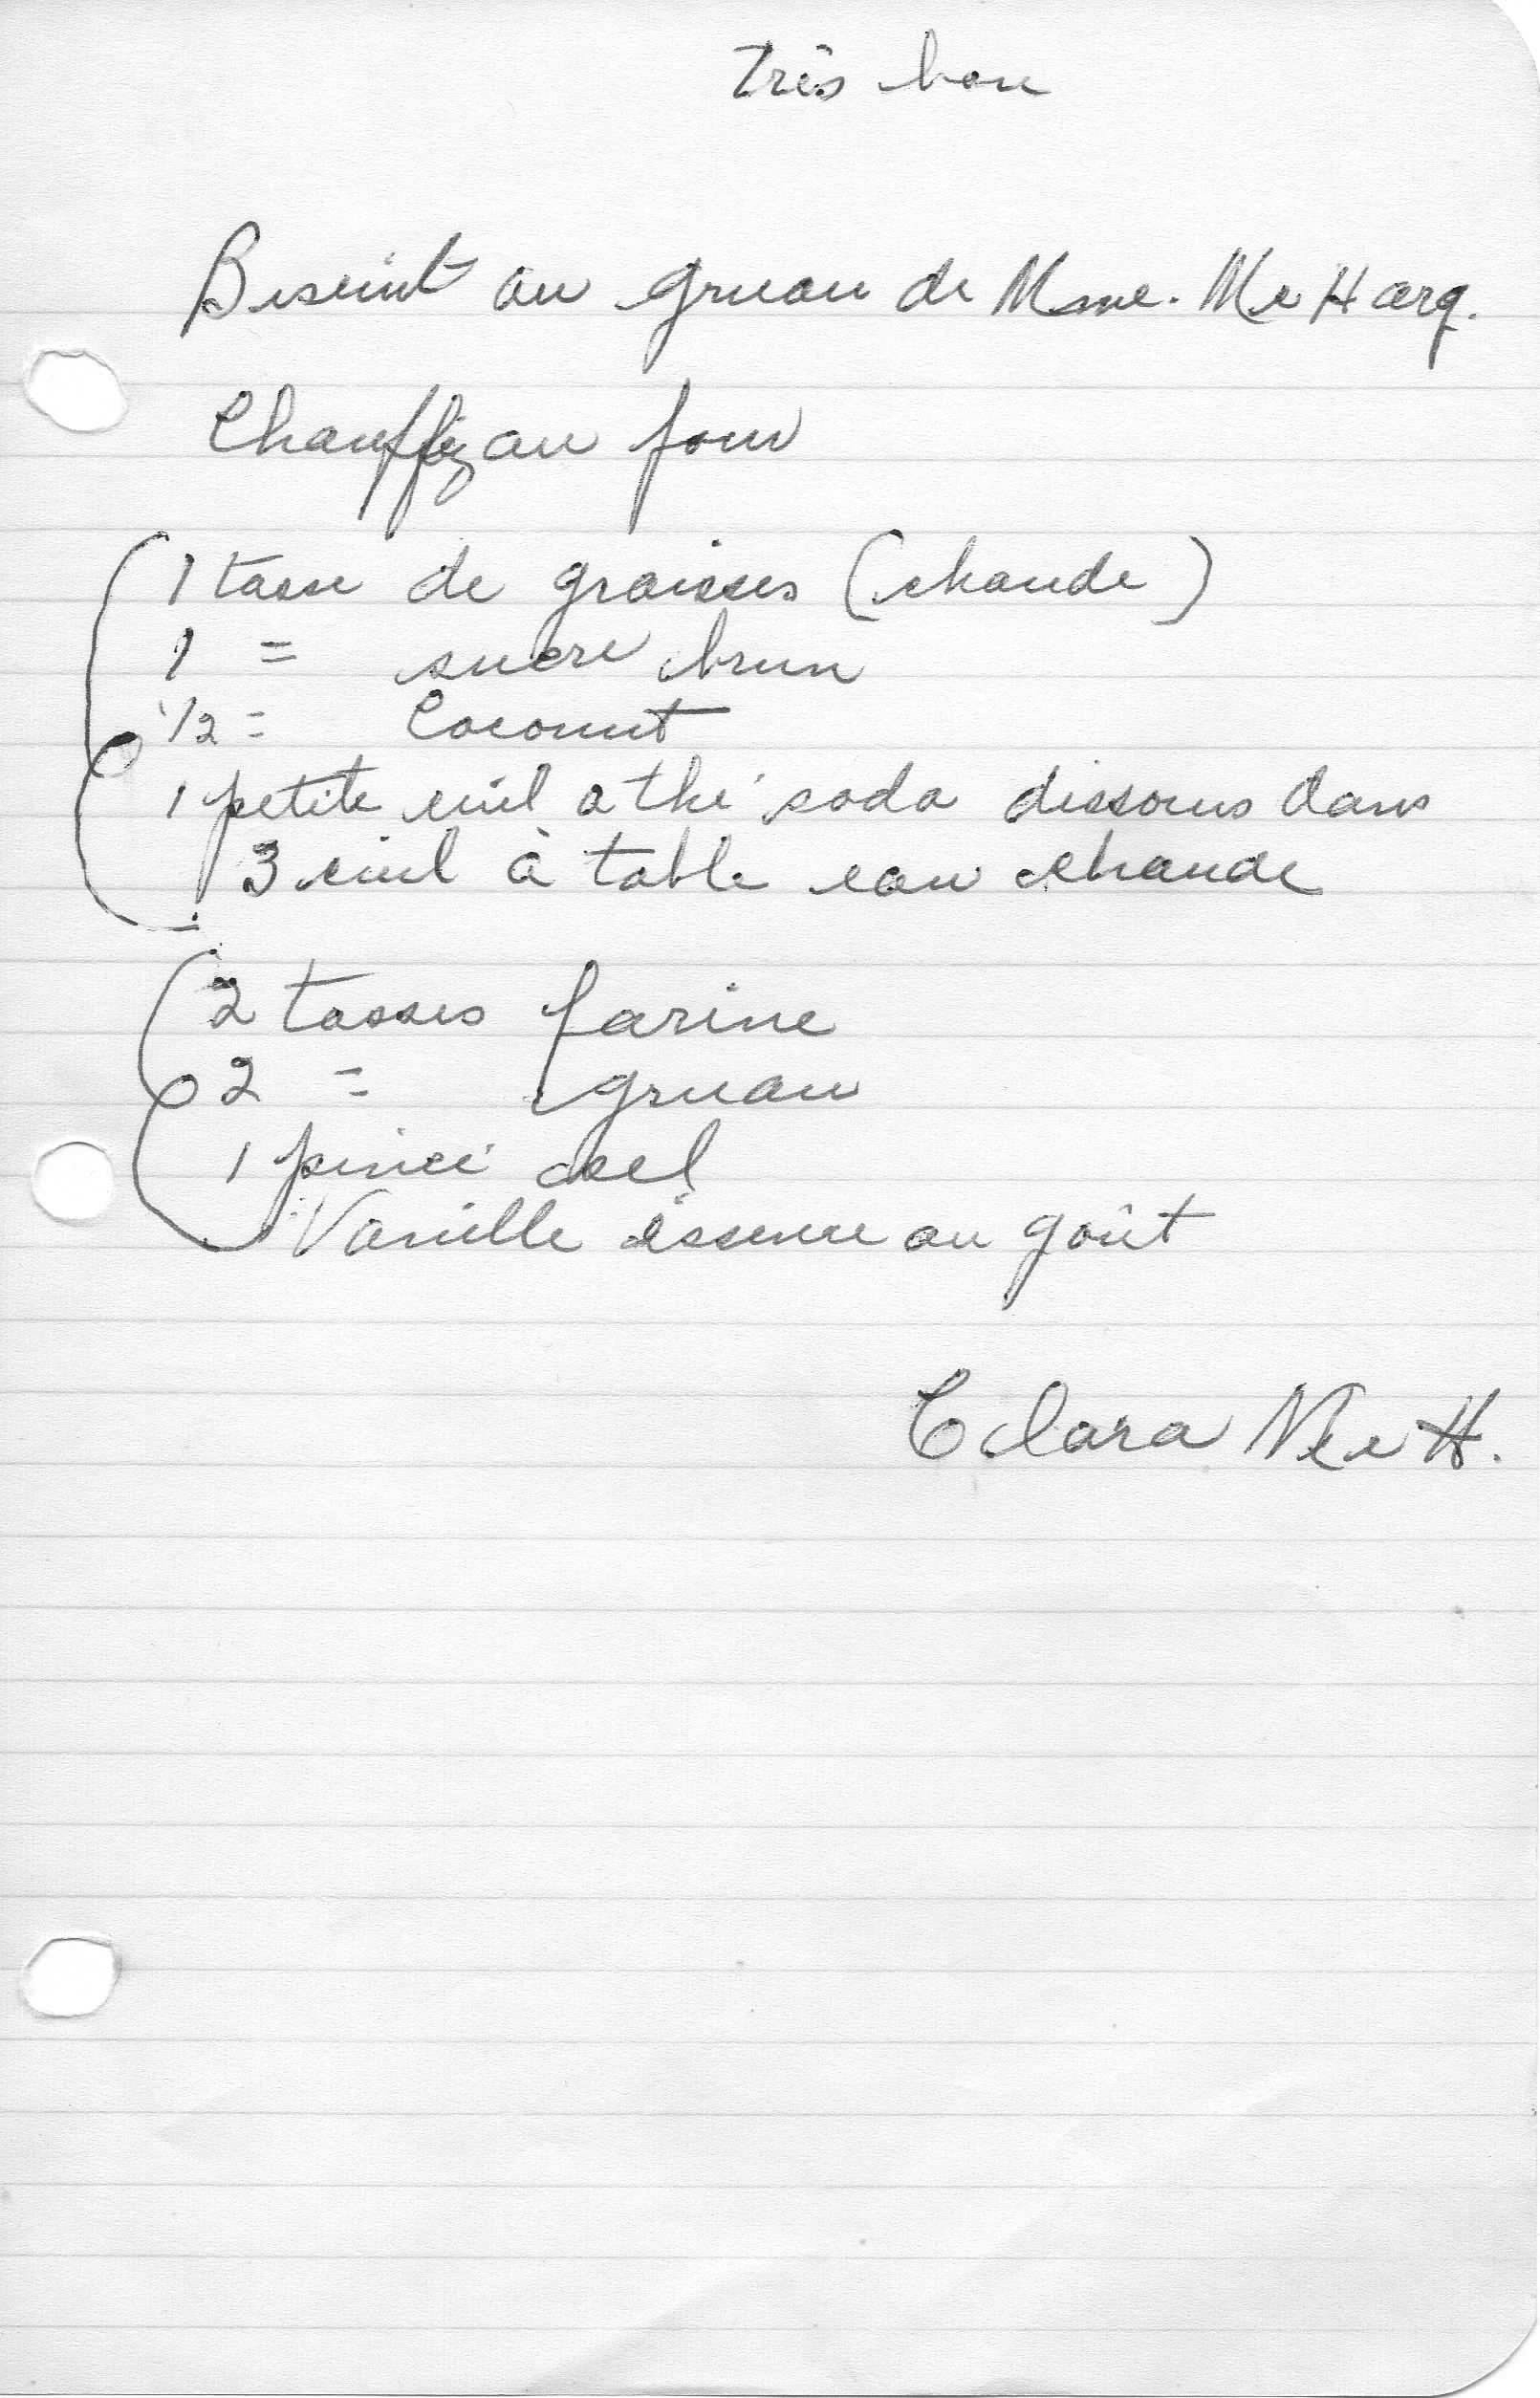 Très bon
Biscuit au gruau de Mme. Mc Harg.
Chauffez au four
1 tasse de graisses (chaude)
1 = sucre brun
1/2 = Coconut
1 petite cuil a thé soda dissous dans
3 cuil à table eau chaude
2 tasses farine
2 = gruau
1 pincé sel
Vanille essence au goût
Clara Mc H.